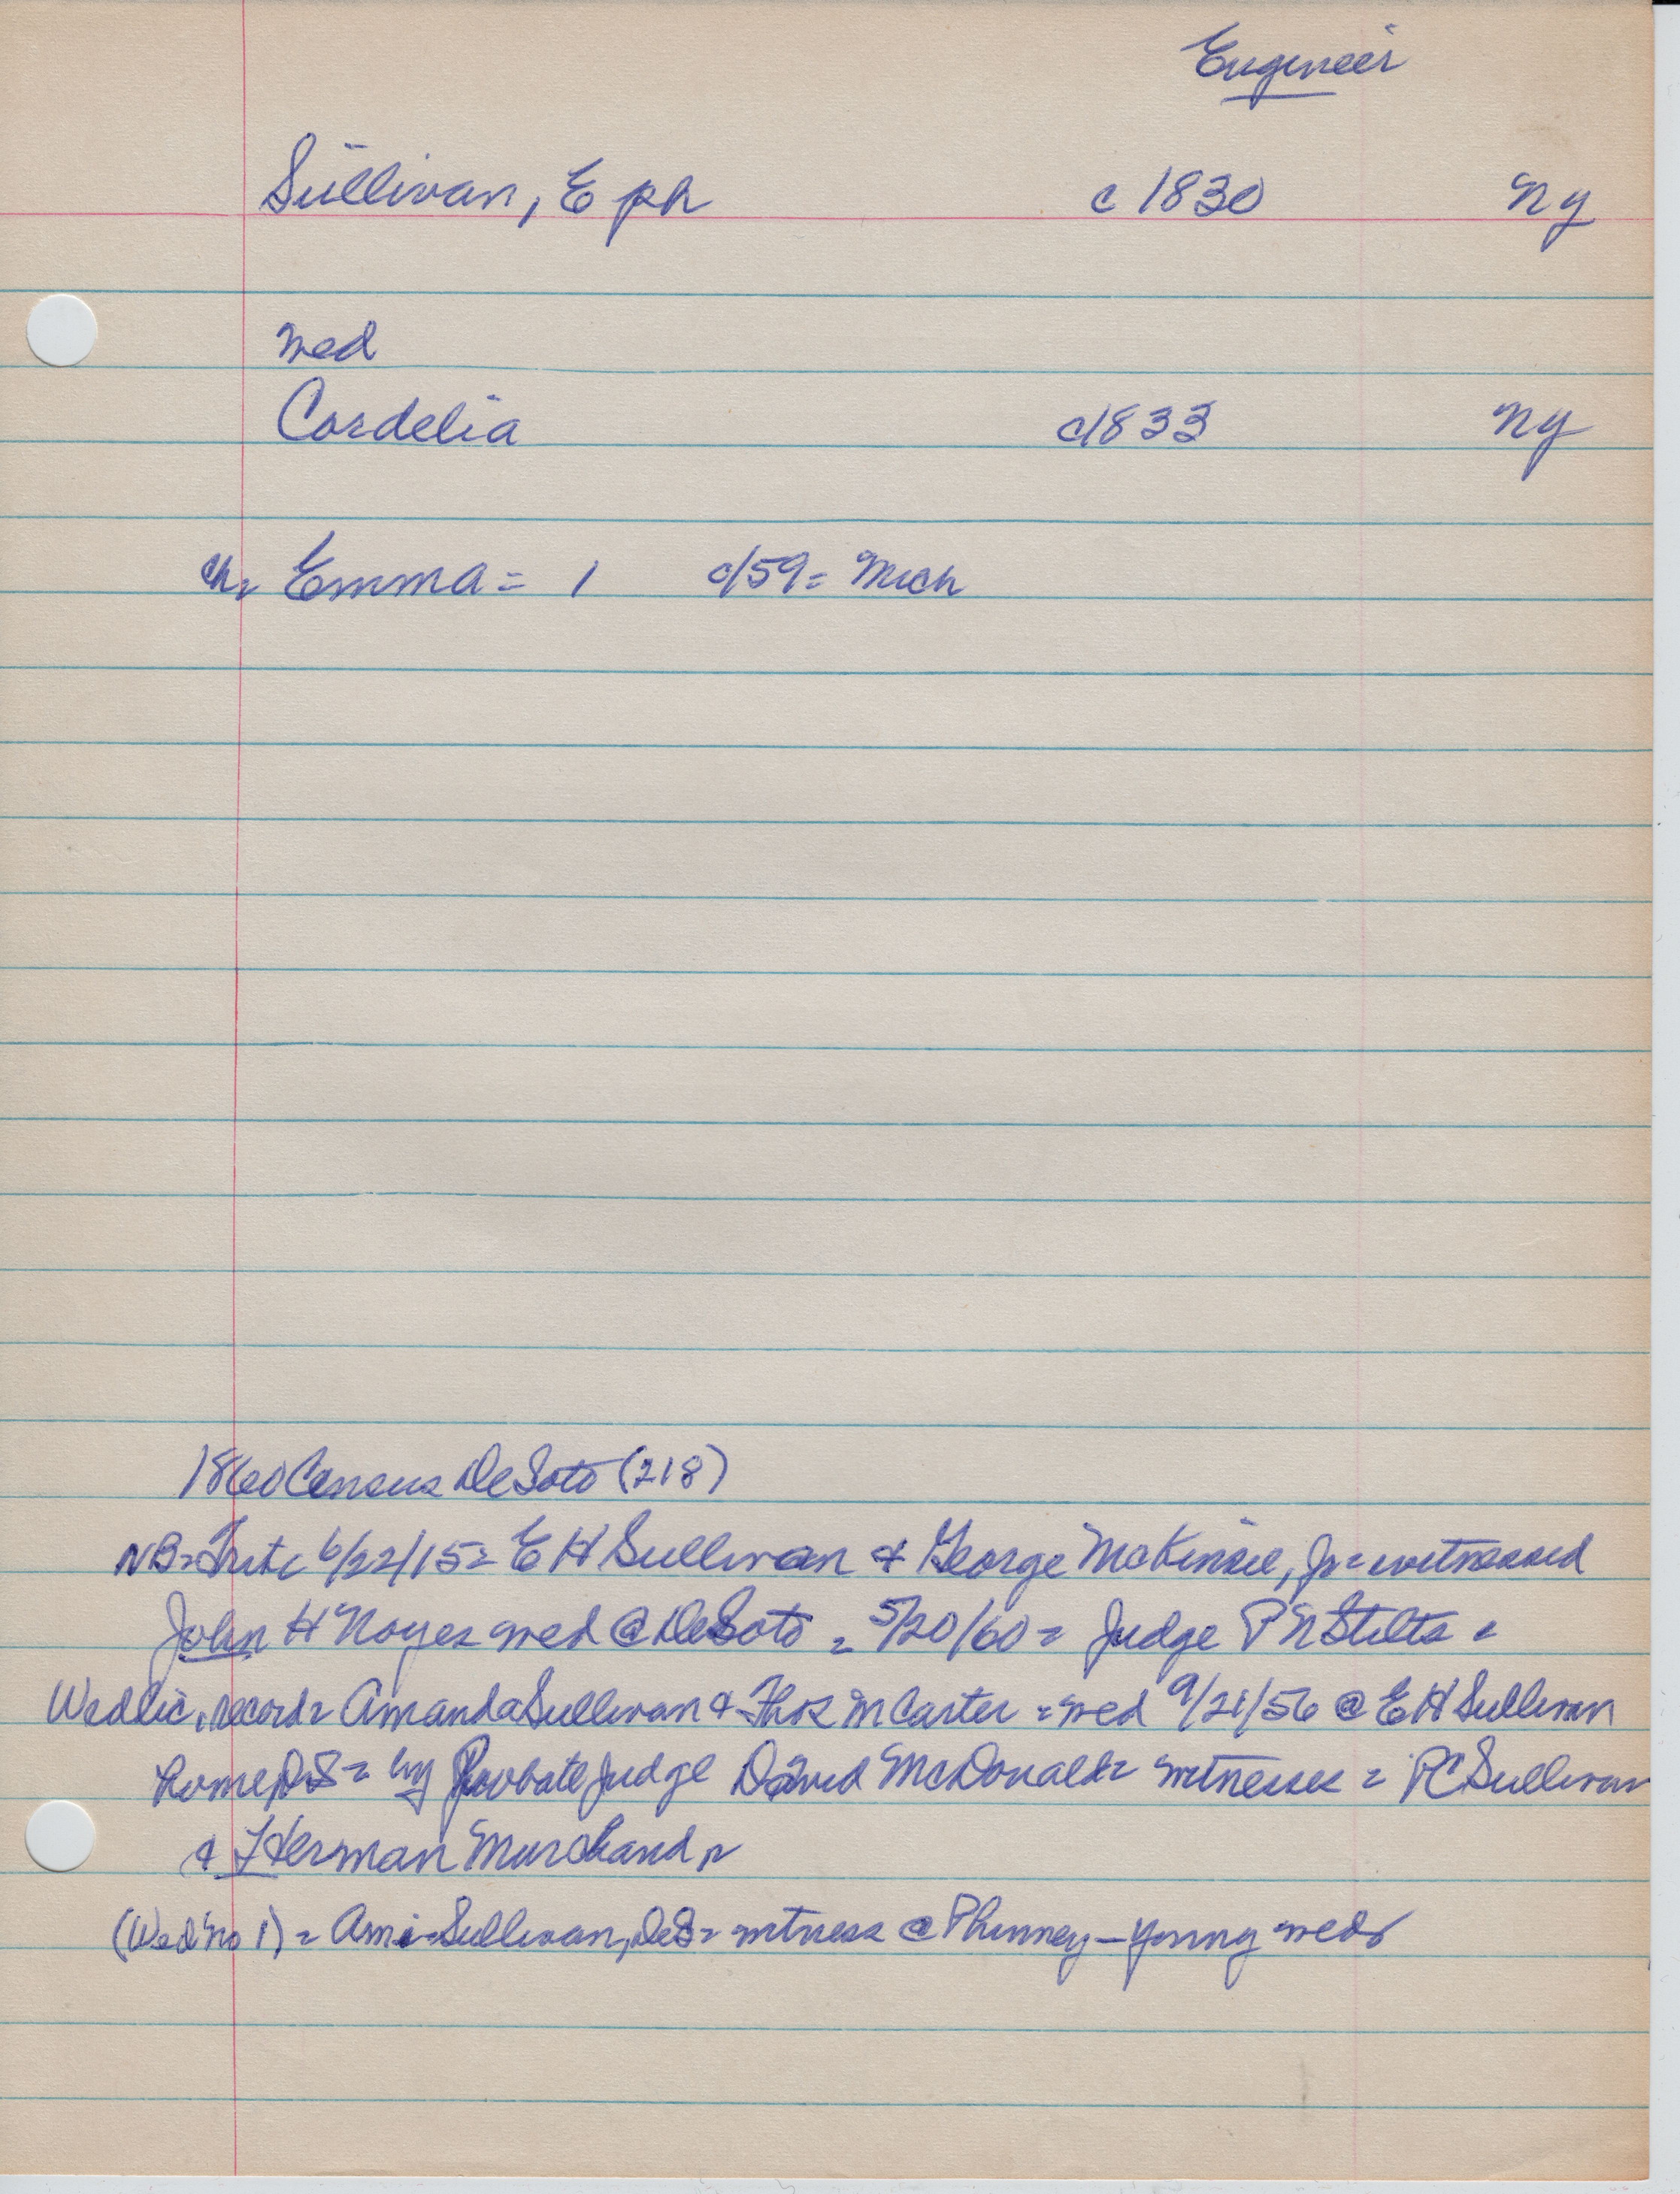 Engineer
Sullivan, Eph c 1830 Ny
wed
Cordelia c1833 Ny
ch= Emma = 1 c/59= Mich
1860 Census DeSoto (218)
NB= 6/22/15= E H Sullivan & George McKinsie, Jr= witnessed
John H Noyes wed @ DeSoto = 5/20/60 = Judge P N Stilts =
Wed lic. record= Amanda Sullivan & Thos M Carter = wed 9/21/56 @ E H Sullivan
home, DeS= by Probate Judge David McDonald= witnesses = PC Sullivan
& Herman Murchand
(Wed no 1) = Ami Sullivan, DeS= witness @ Phinney - Young wed